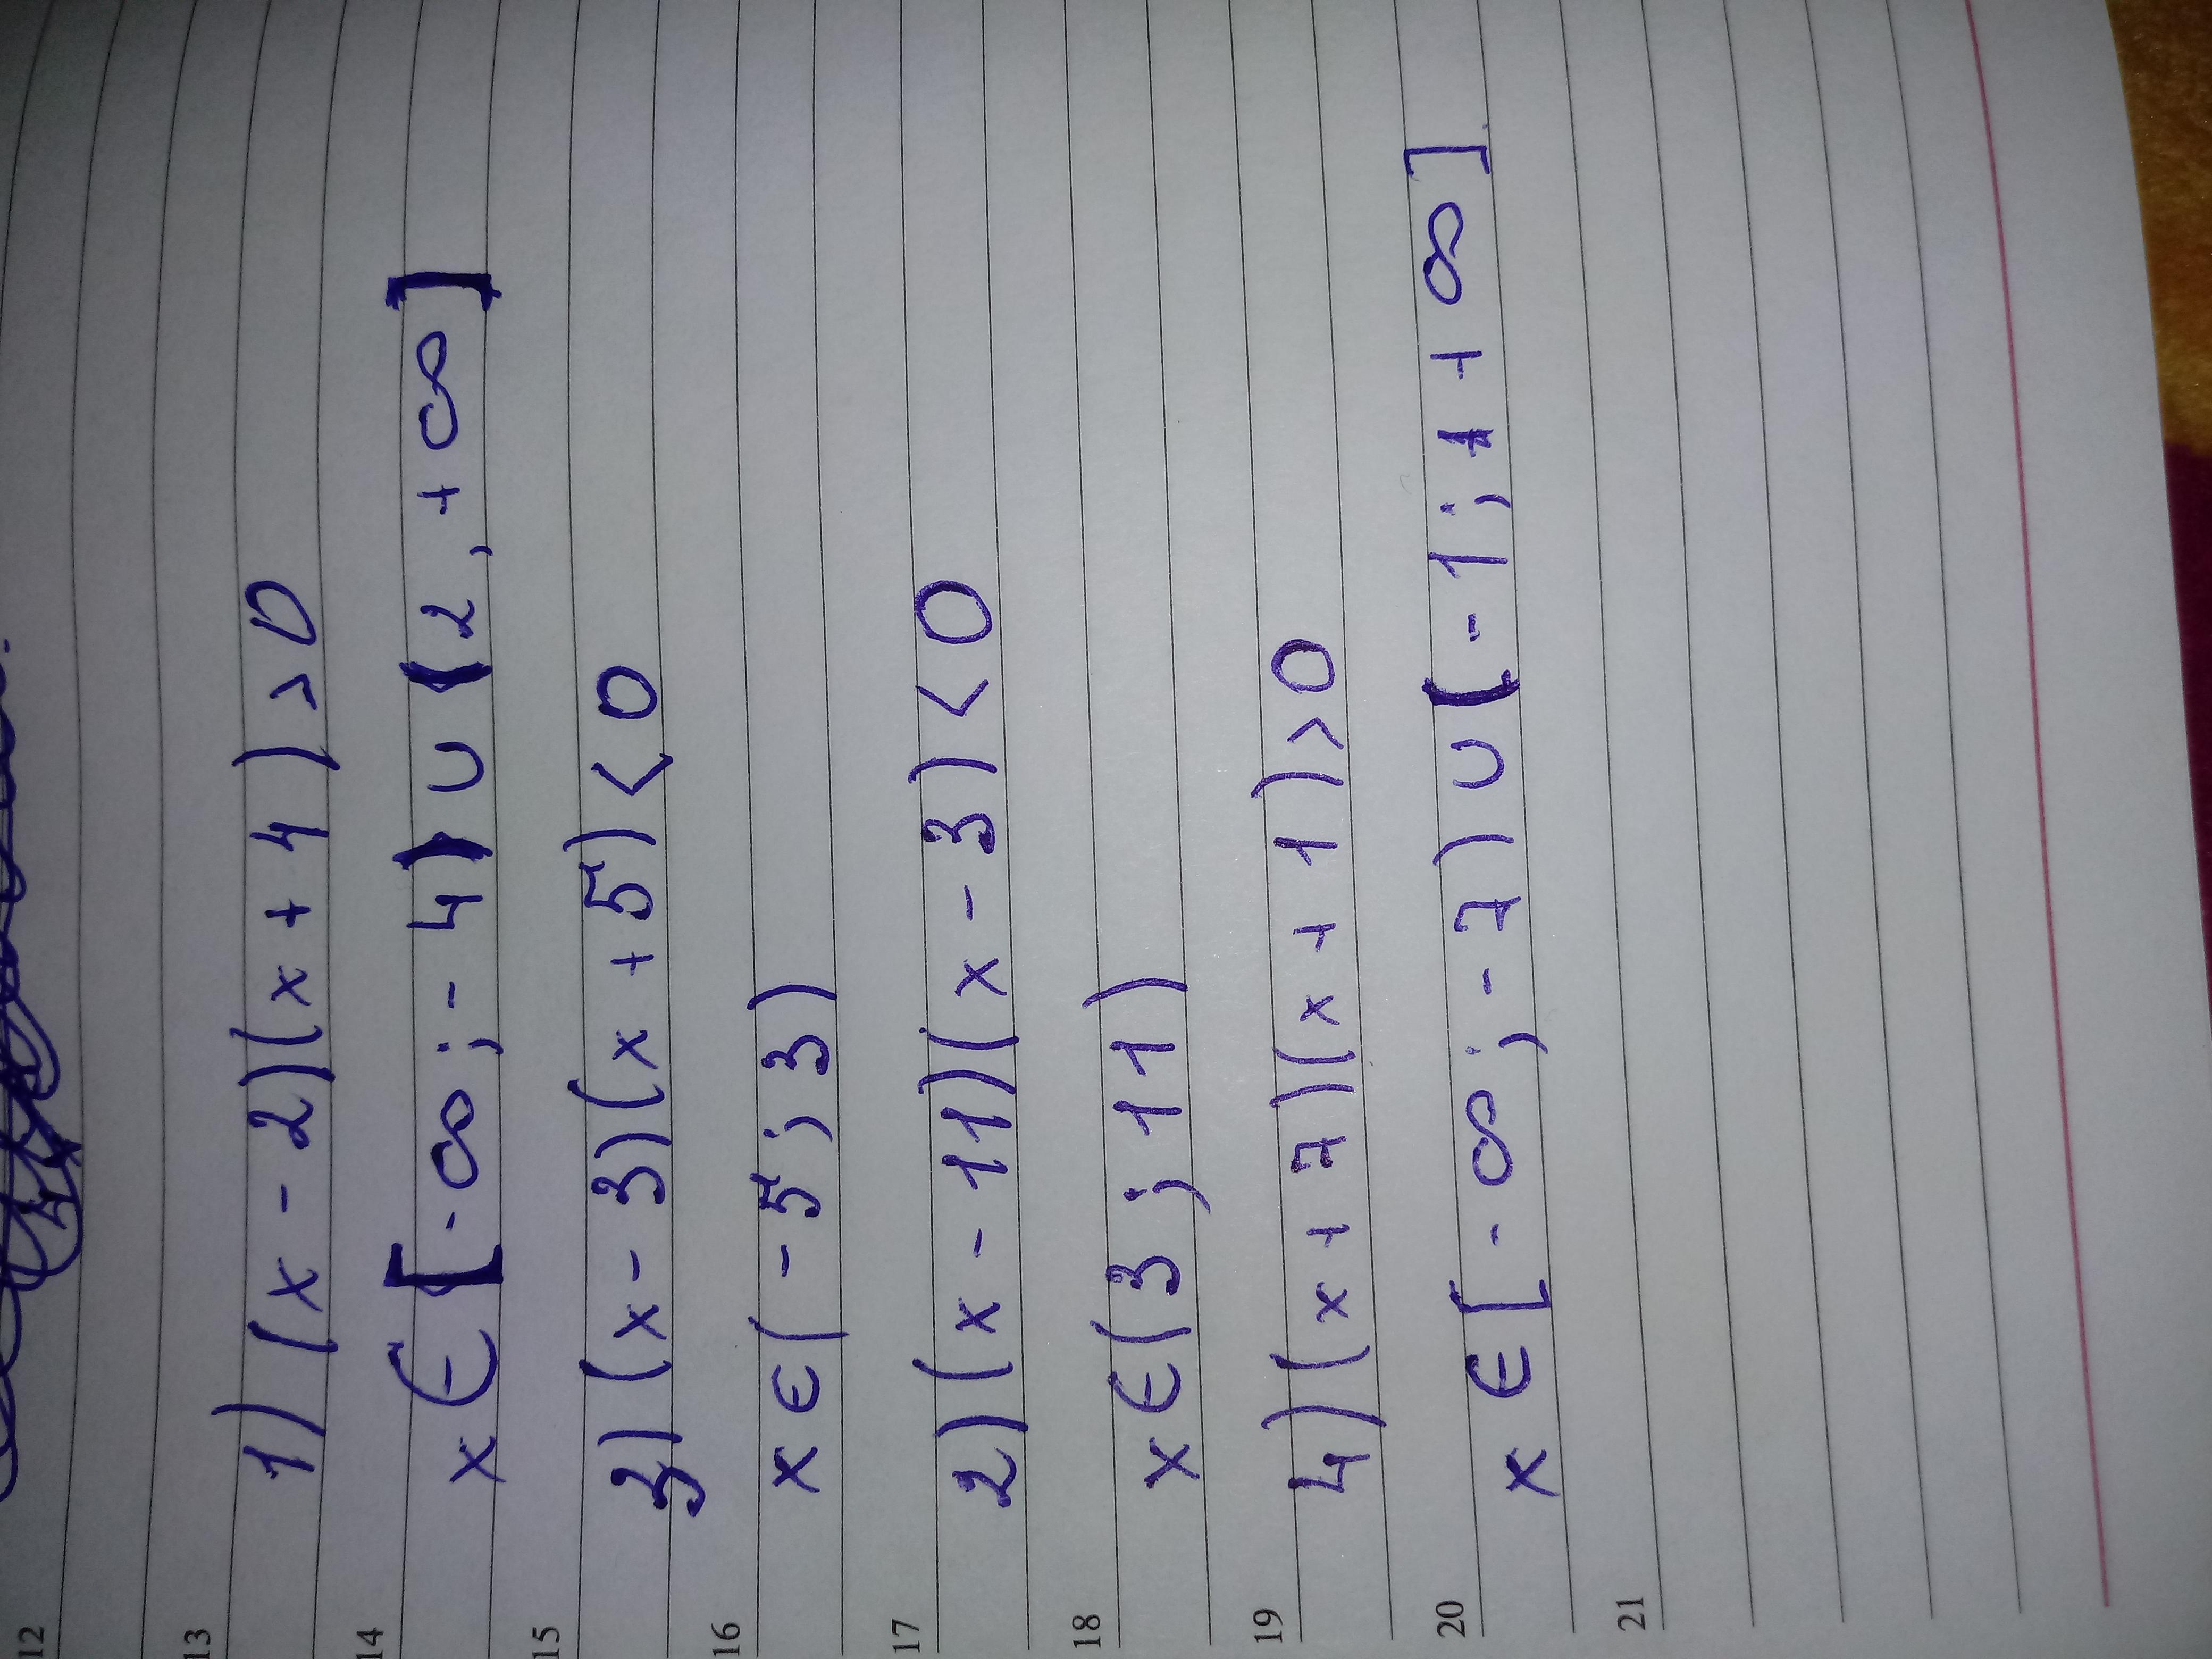 12
13
1) (x - 2)(x + 4) > 0
14
x ∈ [-∞ ; - 4) ∪ (2, +∞]
15
3) (x - 3)(x + 5) < 0
16
x ∈ (-5 ; 3)
17
2) (x - 11)(x - 3) < 0
18
x ∈ (3 ; 11)
19
4) (x + 7)(x + 1) > 0
20
x ∈ [-∞ ; - 7) ∪ (-1 ; + ∞]
21